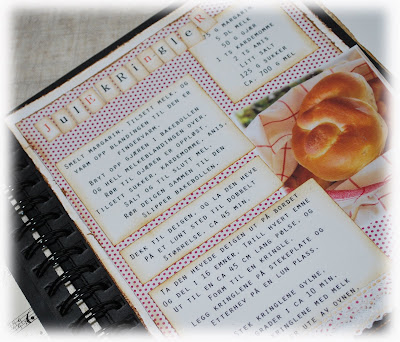 JulEkRingleR
5 G MARGARIN
5 DL MELK
50 G GJÆR
1 TS KARDEMOMME
2 TS ANIS
LITT SALT
125 G SUKKER
CA. 700 G MEL
SMELT MARGARIN, TILSETT MELK, OG
VARM OPP BLANDINGEN TIL DEN ER
FINGERVARM.
BRYT OPP GJÆREN I BAKEBOLLEN
OG HELL MELKEBLANDINGEN OVER.
RØR TIL GJÆREN ER OPPLØST.
TILSETT SUKKER, KARDEMOMME, ANIS,
SALT OG TIL SLUTT MEL.
RØR DEIGEN SAMMEN TIL DEN
SLIPPER BAKEBOLLEN.
DEKK TIL DEIGEN, OG LA DEN HEVE
PÅ ET LUNT STED TIL DOBBELT
STØRRELSE, CA 45 MIN.
TA DEN HEVEDE DEIGEN UT PÅ BORDET
OG DEL I 16 EMNER. TRILL HVERT EMNE
UT TIL EN CA 45 CM LANG PØLSE, OG
FORM TIL EN KRINGLE.
LEGG KRINGLENE PÅ STEKEPLATE OG
ETTERHEV PÅ EN LUN PLASS.
STEK KRINGLENE GYLNE,
GRADER I CA 10 MIN.
KRINGLENE MED MELK
UTE AV OVNEN.